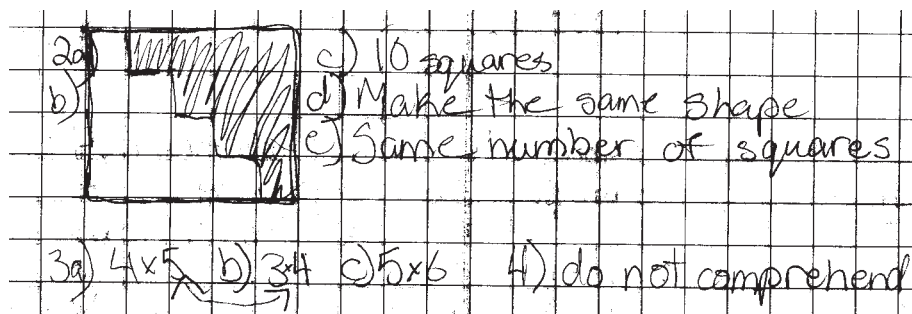 2a) c) 10 squares
b) d) Make the same shape
e) Same number of squares
3a) 4×5 b) 3×4 c) 5×6 4) do not comprehend